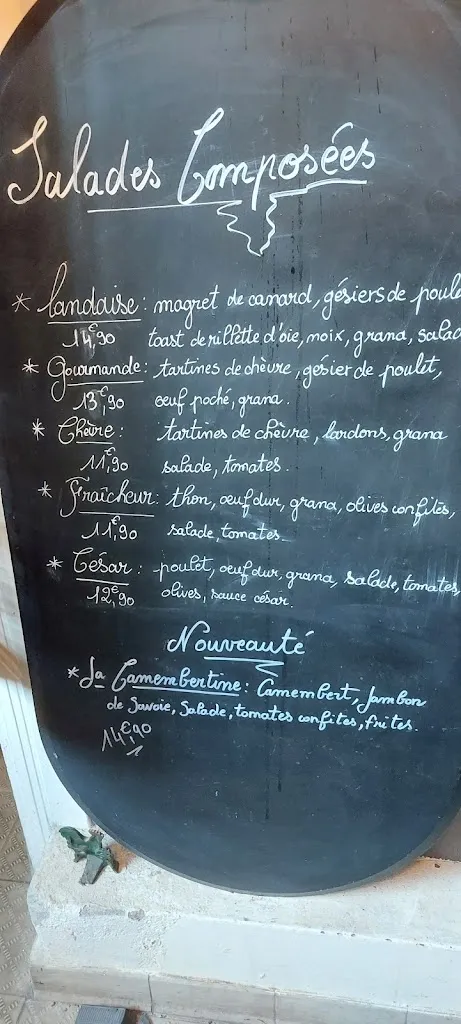 Salades Composées
* Landaise : magret de canard, gésiers de poule
14€,90 toast de rillette d'oie, noix, grana, salad
* Gourmande : tartines de chèvre, gésier de poulet,
13€,90 oeuf poché, grana.
* Chèvre : tartines de chèvre, lardons, grana
11€,90 salade, tomates.
* Fraîcheur : thon, oeuf dur, grana, olives confites,
11€,90 salade, tomates.
* César : poulet, oeuf dur, grana, salade, tomates,
12€,90 olives, sauce césar.
Nouveauté
* La Camembertine : Camembert, Jambon
de Savoie, Salade, tomates confites, frites.
14€,90